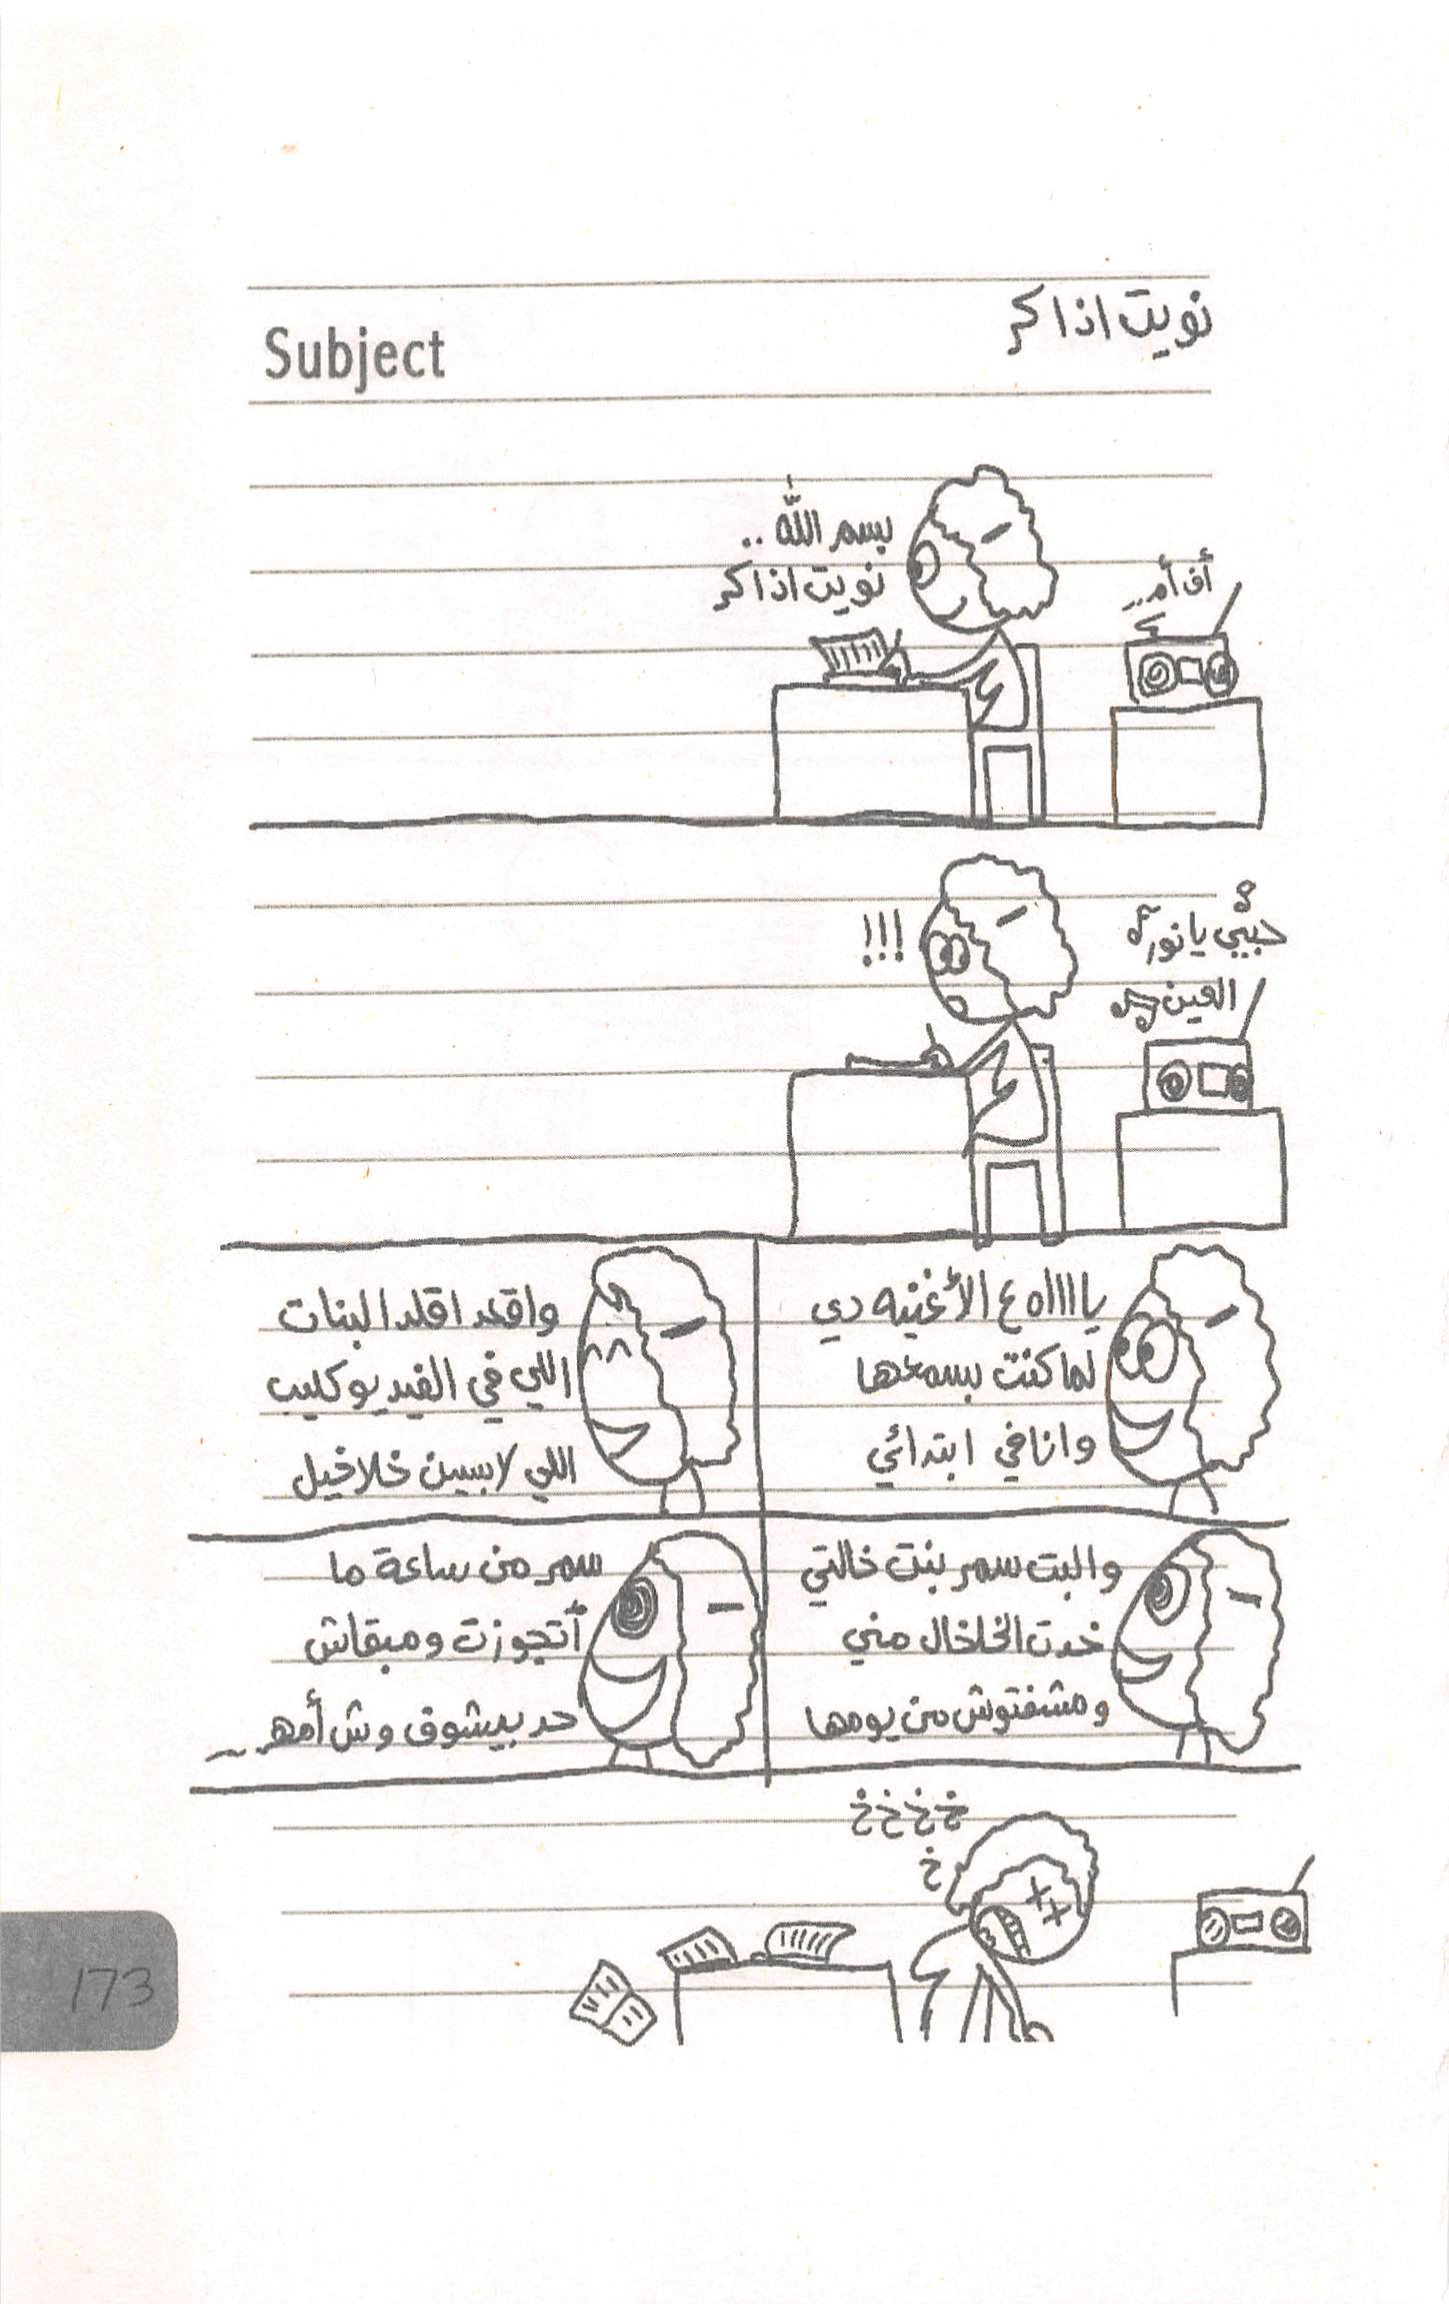 Subject
نويت اذاكر
بسم الله ..
نويت اذاكر
أف أم ..
!!!
حبيبي يا نور
العين
ياااااه ع الأغنيه دي
لما كنت بسمعها
وانا في ابتدائي
واقعد اقلد البنات
اللي في الفيديو كليب
اللي لابسين خلاخيل
والبت سمر بنت خالتي
خدت الخلخال مني
ومشفتوش من يومها
سمر من ساعة ما
أتجوزت ومبقاش
حد بيشوف وش أمها
خ خ خ خ
خ
173